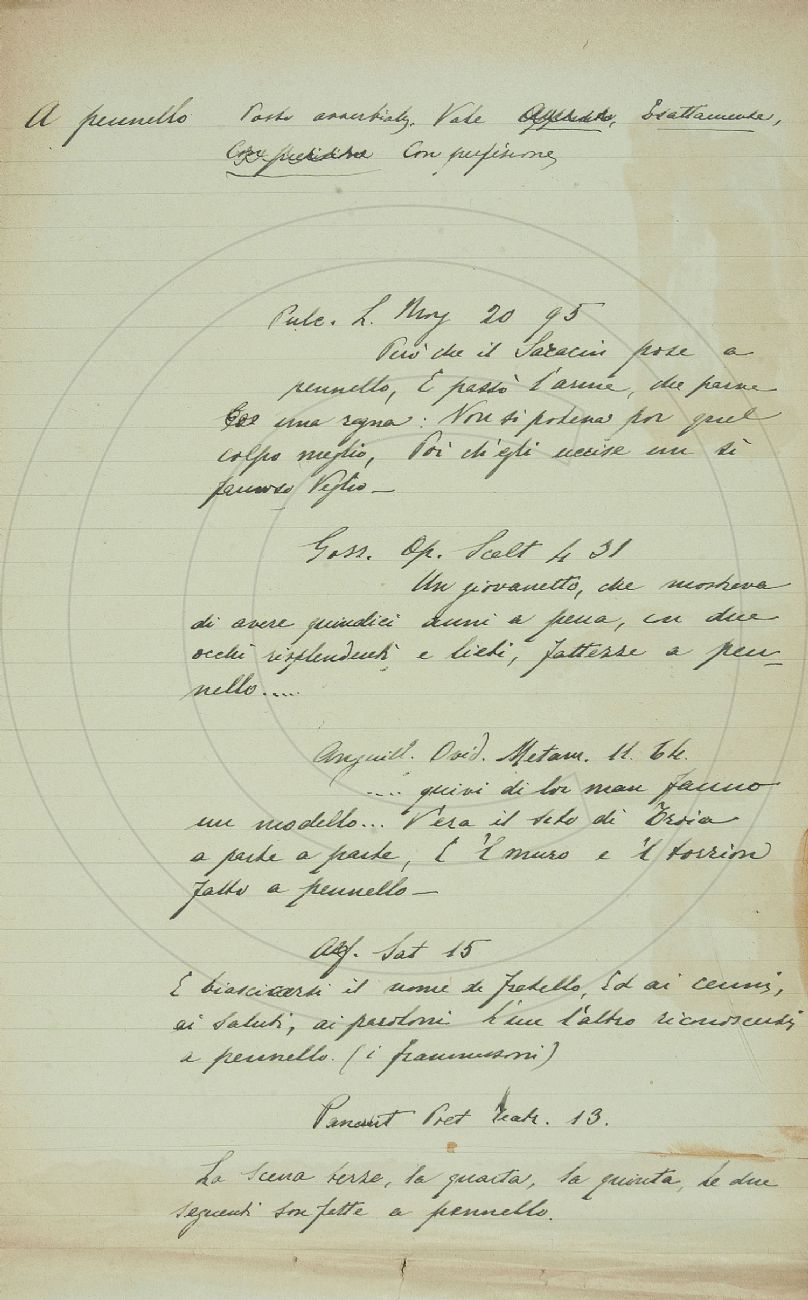 A pennello Posto avverbialm. Vale Esattamente,
Con perfezione
Pulc. L. Morg 20 95
Però che il Saracin pose a
pennello, E passò l'arme, che parve
una ragna: Non si poteva por quel
colpo meglio, Poi ch'egli uccise un sì
famoso Veglio —
Gozz. Op. Scelt 4 31
Un giovanetto, che mostrava
di avere quindici anni a pena, con due
occhi risplendenti e lieti, fattezze a pen-
nello.....
Anguill. Ovid. Metam. 11. 64.
.... quivi di lor man fanno
un modello... V'era il sito di Troia
a parte a parte, E 'l muro e 'l torrion
fatto a pennello —
Alf. Sat 15
E biascicarsi il nome di fratello, Ed ai cenni,
ai saluti, ai paroloni L'un l'altro riconoscersi
a pennello. (i frammassoni)
Panant Poet Teatr. 13.
La scena terza, la quarta, la quinta, le due
seguenti son fatte a pennello.